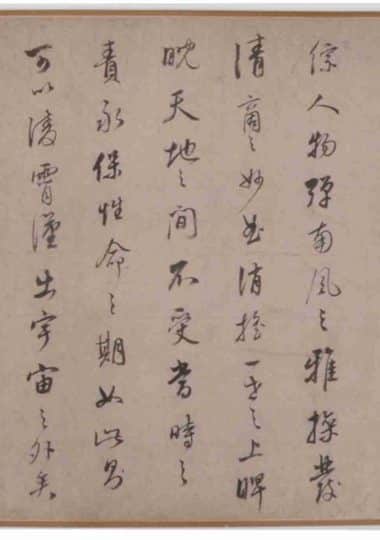 綜人物彈南風之雅操發
清商之妙曲消搖一世之上睥
睨天地之間不受當時之
責永保性命之期如此則
可以凌霄漢出宇宙之外矣